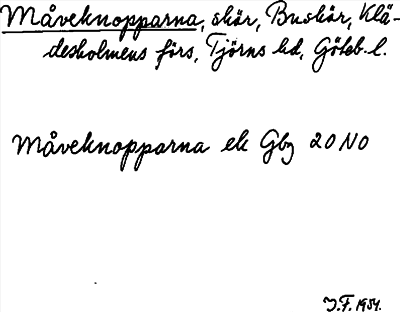 Måveknopparna, skär, Buskär, Klä-
desholmens förs, Tjörns hd, Göteb. l.
Måveknopparna ek Gbg 20 NO
J.F. 1954.